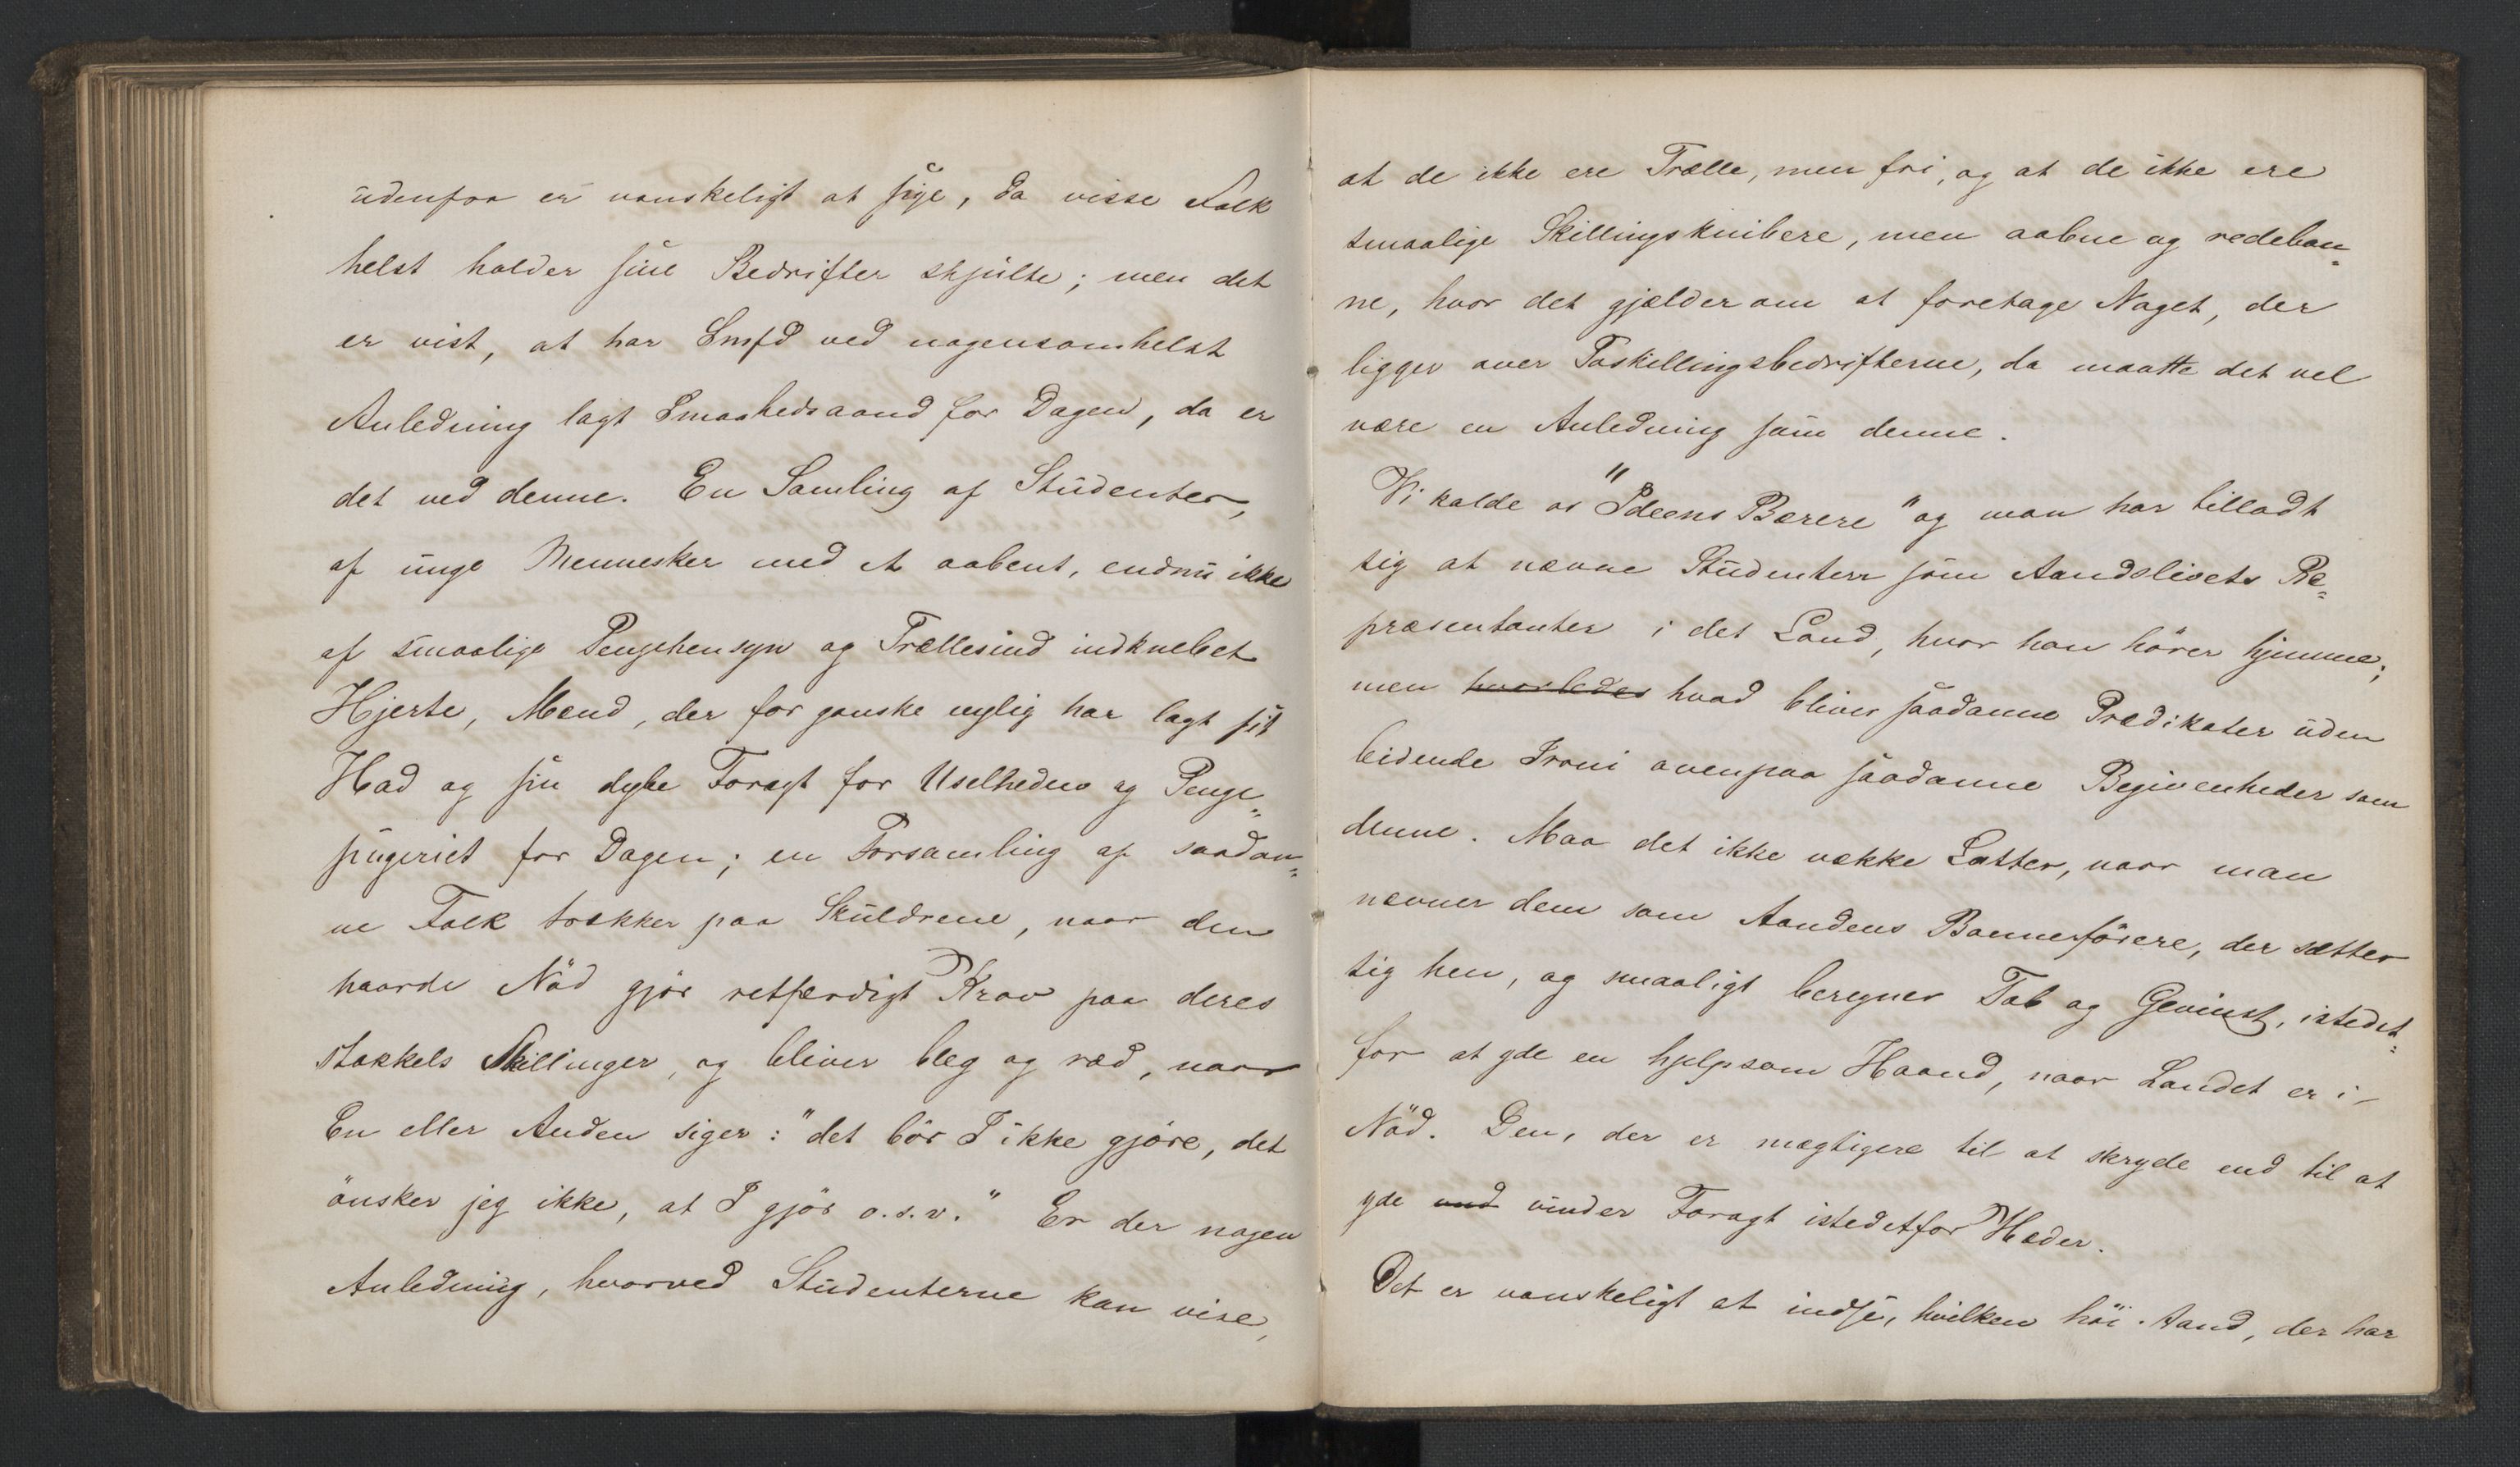 udenfra er vanskeligt at sige, da visse Folk
helst holder sine Bedrifter skjulte; men det
er vist, at har Smfd ved nogensomhelst
Anledning lagt Smaahedsaand for Dagen, da er
det ved denne. En Samling af Studenter,
af unge Mennesker med et aabent, endnu ikke
af smaalige Pengehensyn og Trællesind indknebet
Hjerte, Mænd, der for ganske nylig har lagt sit
Had og sin dybe Foragt for Uselheden og Penge„
pugeriet for Dagen; en Forsamling af saadan„
ne Folk trækker paa Skuldrene, naar den
haarde Nöd gjör retfærdigt Krav paa deres
stakkels Skillinger, og bliver bleg og ræd, naar
En eller Anden siger: "det bör I ikke gjöre, det
önsker jeg ikke, at I gjör o.s.v." Er der nogen
Anledning, hvorved Studenterne kan vise,
at de ikke ere Trælle, men fri, og at de ikke ere
smaalige Skillingsknibere, men aabne og redebon„
ne, hvor det gjælder om at foretage Noget, der
ligger over Toskillingsbedrifterne, da maatte det vel
være en Anledning som denne.
Vi kalde os "Ideens Bærere" og man har tilladt
sig at nævne Studenten som Aandslivets Re„
præsentanter i det Land, hvor han hörer hjemme;
men hvorledes hvad bliver saadanne Prædikater uden
bidende Ironi ovenpaa saadanne Begivenheder som
denne. Maa det ikke vække Latter, naar man
nævner dem som Aandens Bannerförere, der sætter
sig hen, og smaaligt beregner Tab og Gevinst, istedet„
for at yde en hjelpsom Haand, naar Landet er i
Nöd. Den, der er mægtigere til at skryde end til at
yde und vinder Foragt istedetfor Hæder.
Det er vanskeligt at indse, hvilken höi Aand, der har